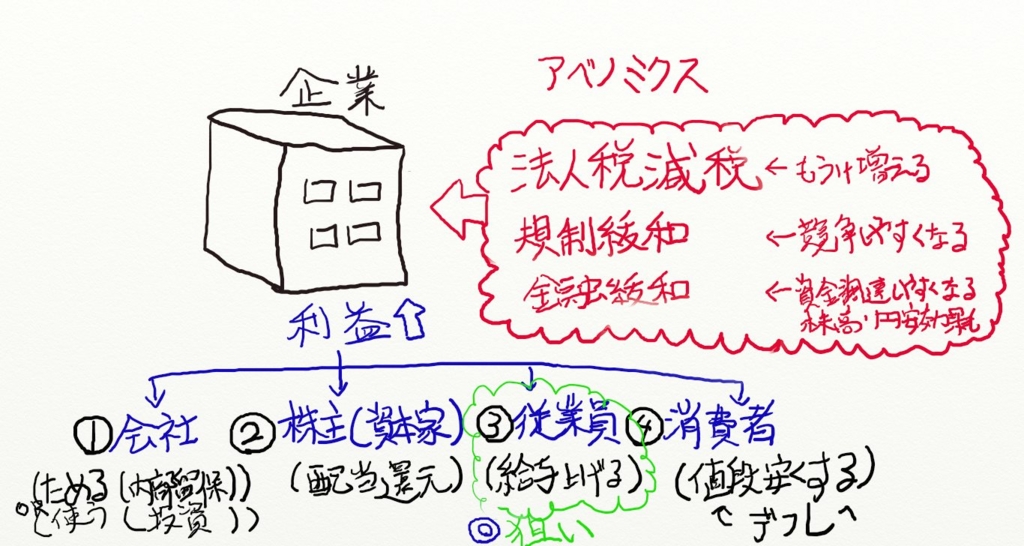 企業
アベノミクス
法人税減税 ←もうけ増える
規制緩和 ←競争しやすくなる
金融緩和 ←資金調達しやすくなる
株高、円安効果も
利益⇧
①会社 ②株主(資本家) ③従業員 ④消費者
(ためる(内部留保)) (配当還元) (給与上げる) (値段安くする)
使う(投資)) デフレへ
◎狙い